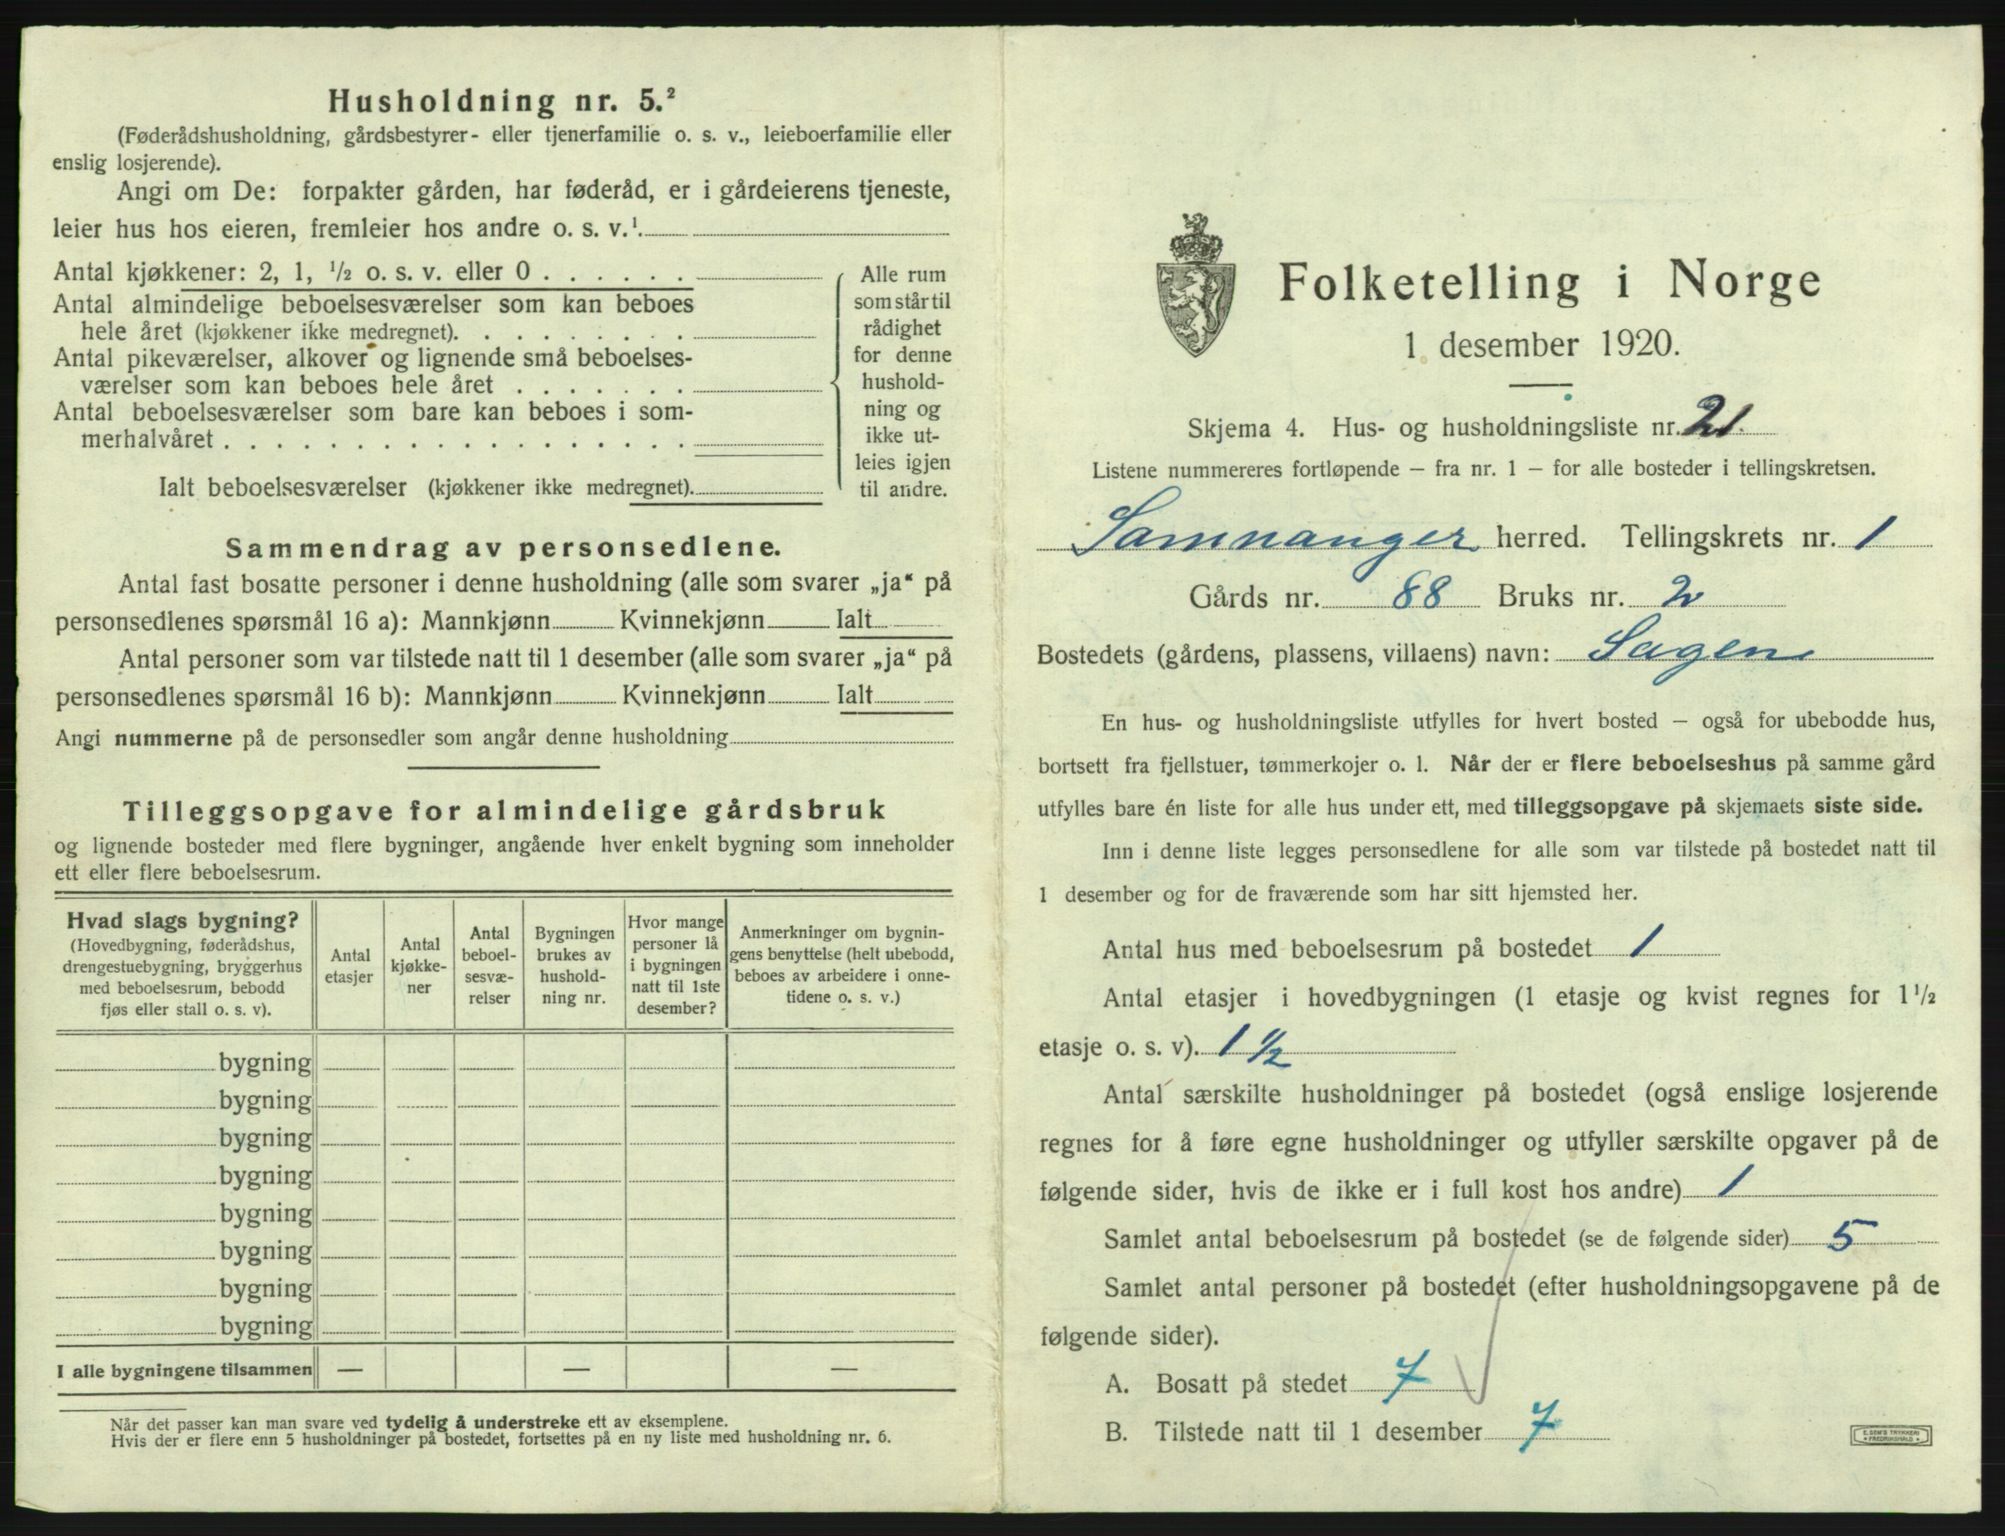 Husholdning nr. 5.²
(Føderådshusholdning, gårdsbestyrer- eller tjenerfamilie o. s. v., leieboerfamilie eller
enslig losjerende).
Angi om De: forpakter gården, har føderåd, er i gårdeierens tjeneste,
leier hus hos eieren, fremleier hos andre o. s. v.¹
Antal kjøkkener: 2, 1, ½ o. s. v. eller 0 . . . . . .
Antal almindelige beboelsesværelser som kan beboes
hele året (kjøkkener ikke medregnet). . . . . . . . .
Antal pikeværelser, alkover og lignende små beboelses-
værelser som kan beboes hele året . . . . . . .
Antal beboelsesværelser som bare kan beboes i som-
merhalvåret . . . . . . . . . . . . . . . . . .
Ialt beboelsesværelser (kjøkkener ikke medregnet).
Alle rum
som står til
rådighet
for denne
hushold-
ning og
ikke ut-
leies igjen
til andre.
Sammendrag av personsedlene.
Antal fast bosatte personer i denne husholdning (alle som svarer „ja“ på
personsedlenes spørsmål 16 a): Mannkjønn Kvinnekjønn Ialt
Antal personer som var tilstede natt til 1 desember (alle som svarer „ja“ på
personsedlenes spørsmål 16 b): Mannkjønn Kvinnekjønn Ialt
Angi nummerne på de personsedler som angår denne husholdning
Tilleggsopgave for almindelige gårdsbruk
og lignende bosteder med flere bygninger, angående hver enkelt bygning som inneholder
ett eller flere beboelsesrum.
Hvad slags bygning?
(Hovedbygning, føderådshus,
drengestuebygning, bryggerhus
med beboelsesrum, bebodd
fjøs eller stall o. s. v).
Antal
etasjer
Antal
kjøkke-
ner
Antal
beboel-
sesvæ-
relser
Bygningen
brukes av
hushold-
ning nr.
Hvor mange
personer lå
i bygningen
natt til 1ste
desember?
Anmerkninger om bygnin-
gens benyttelse (helt ubebodd,
beboes av arbeidere i onne-
tidene o. s. v.)
bygning
bygning
bygning
bygning
bygning
bygning
bygning
bygning
I alle bygningene tilsammen — — —
Når det passer kan man svare ved tydelig å understreke ett av eksemplene.
Hvis der er flere enn 5 husholdninger på bostedet, fortsettes på en ny liste med husholdning nr. 6.
Folketelling i Norge
1 desember 1920.
Skjema 4. Hus- og husholdningsliste nr. 21.
Listene nummereres fortløpende — fra nr. 1 — for alle bosteder i tellingskretsen.
Samnanger herred. Tellingskrets nr. 1
Gårds nr. 88 Bruks nr. 2
Bostedets (gårdens, plassens, villaens) navn: Sagen
En hus- og husholdningsliste utfylles for hvert bosted — også for ubebodde hus,
bortsett fra fjellstuer, tømmerkojer o. l. Når der er flere beboelseshus på samme gård
utfylles bare én liste for alle hus under ett, med tilleggsopgave på skjemaets siste side.
Inn i denne liste legges personsedlene for alle som var tilstede på bostedet natt til
1 desember og for de fraværende som har sitt hjemsted her.
Antal hus med beboelsesrum på bostedet 1
Antal etasjer i hovedbygningen (1 etasje og kvist regnes for 1½
etasje o. s. v). 1 ½
Antal særskilte husholdninger på bostedet (også enslige losjerende
regnes for å føre egne husholdninger og utfyller særskilte opgaver på de
følgende sider, hvis de ikke er i full kost hos andre) 1
Samlet antal beboelsesrum på bostedet (se de følgende sider) 5
Samlet antal personer på bostedet (efter husholdningsopgavene på de
følgende sider).
A. Bosatt på stedet 7
B. Tilstede natt til 1 desember 7
E. SEM'S TRYKKERI
FREDRIKSHALD